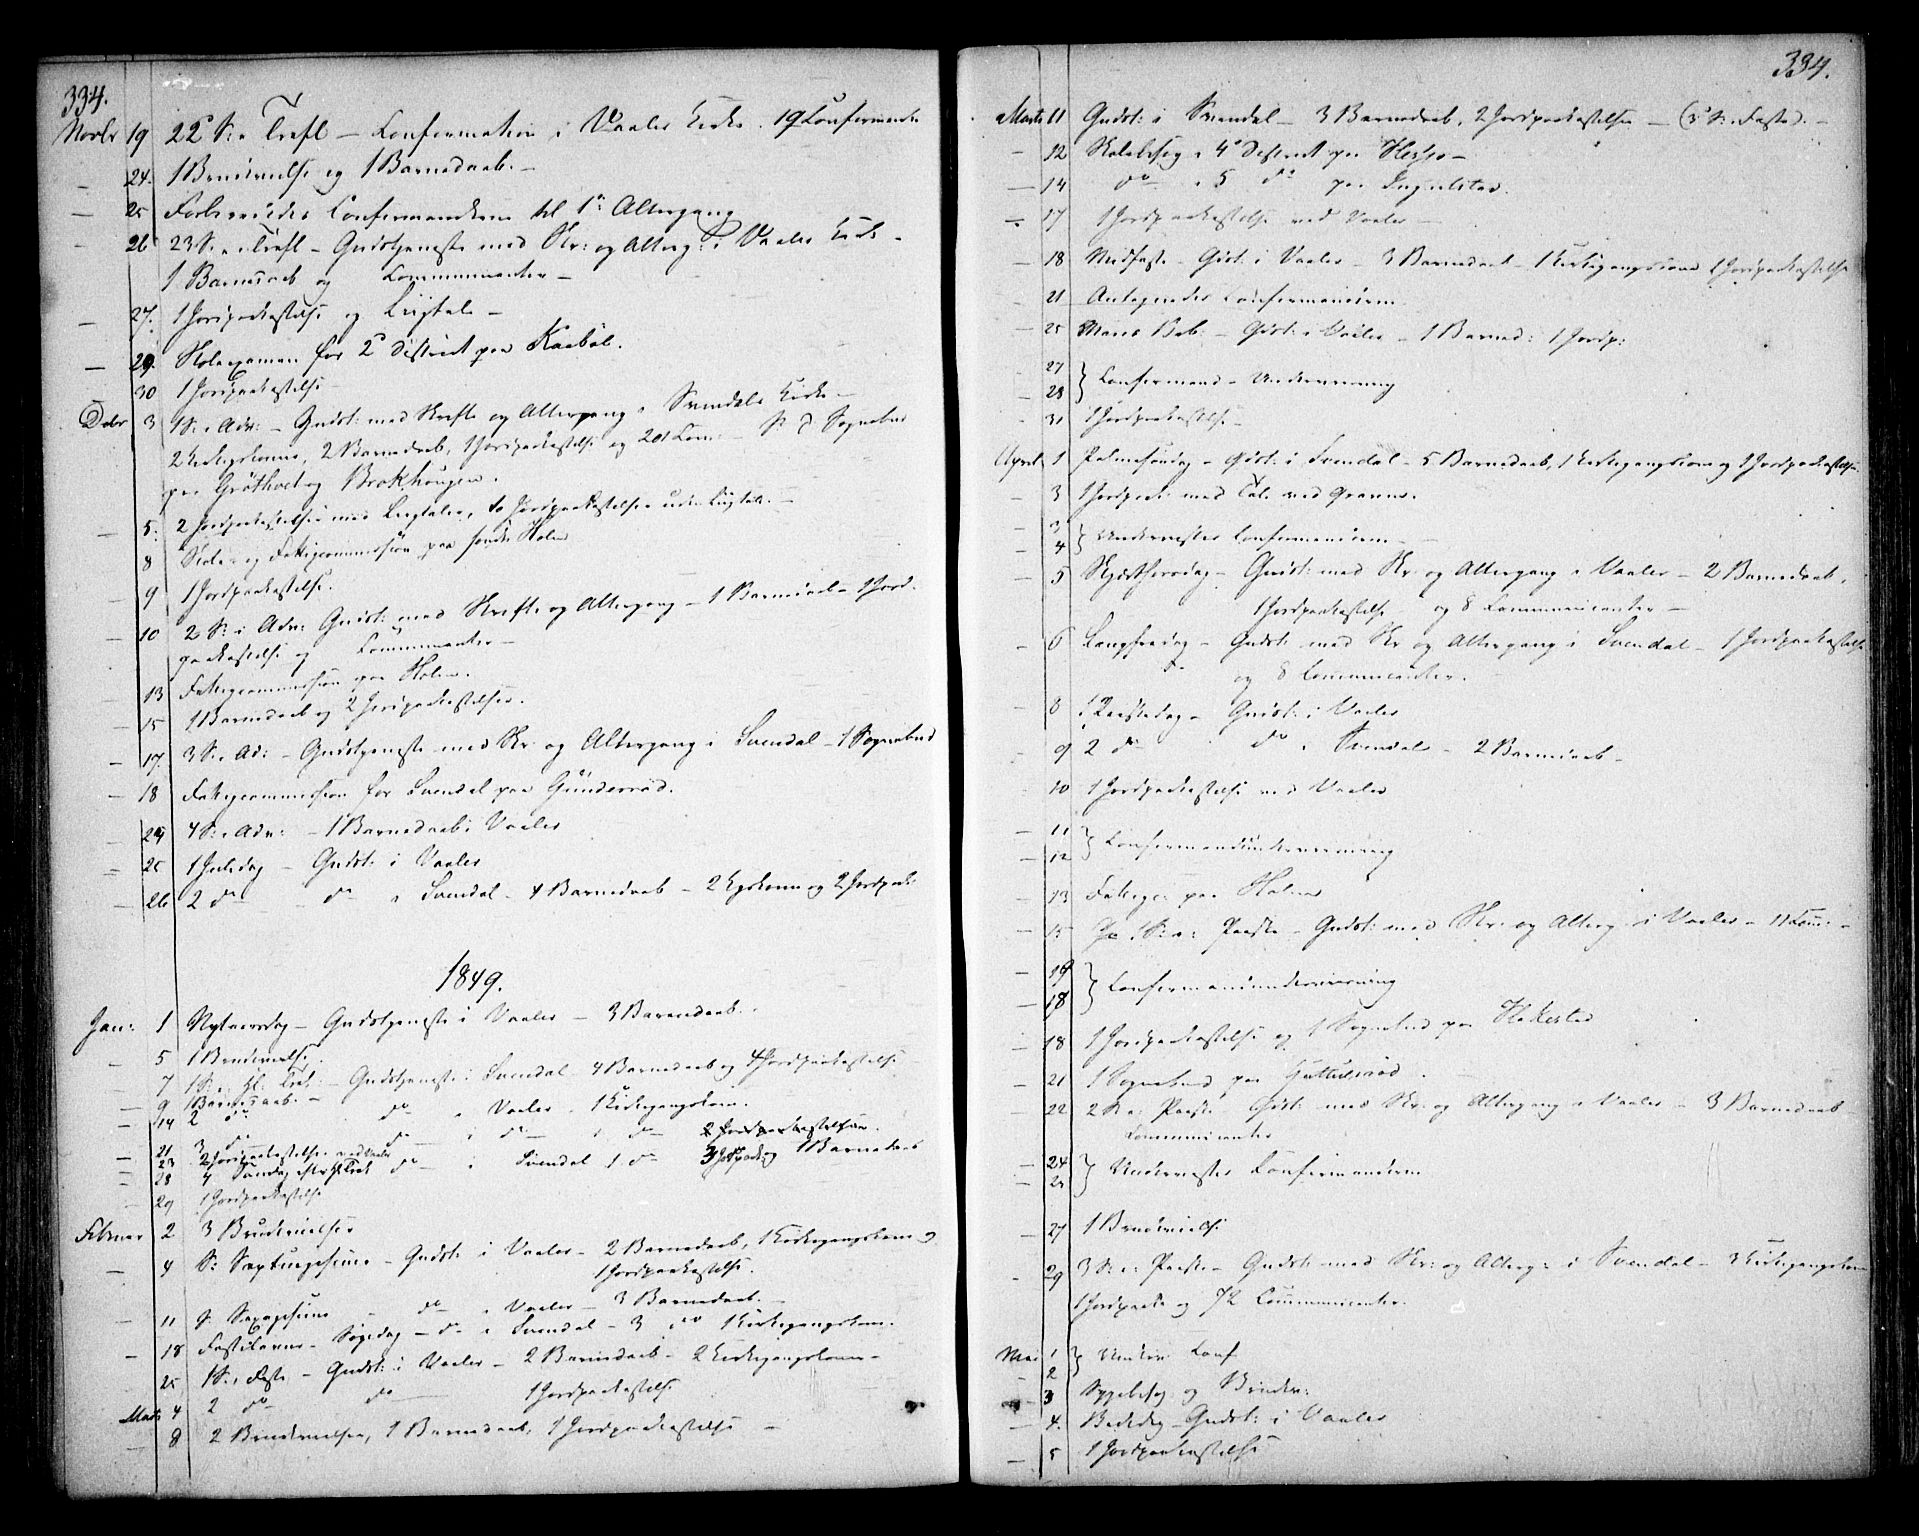 334.
Novbr 19 22d S: e Trefl – Confirmation i Vaaler Kirke. 19 Confirmender
1 Brudevielse og 1 Barnedaab. –
– 24.
– 25 Forberededes Confirmanderne til 1ste Altergang
– 26 23 S. e. Trefl – Gudstjeneste med Skr: og Alterg: i Vaaler Kirke –
1 Barnedaab og Communicanter –
– 27. 1 Jordpaakastelse og Liigtale –
– 29. Skoleexamen for 2d District paa Kaabøl.
30 1 Jordpaakastelse –
Debr 3 1 S: i Adv: – Gudst: med Skrifte og Altergang i Svendals Kirke –
2 Kirkegkoner, 2 Barnedaab, 1 Jordpaakastelse og 20 Com: – Sognebud
paa Grøthvet og Brokhougen.
– 5. 2 Jordpaakastelser med Liigtaler, to Jordpaakastelser uden Liigtale. –
8 Skole- og Fattigcommission paa søndre Holm
9 1 Jordpaakastelse.
– 10 2 S: i Adv: Gudst: med Skrifte og Altergang – 1 Barnedaab – 1 Jord-
paakastelse og Communicanter –
– 13 Fattigcommission paa Holm.
– 15 1 Barnedaab og 2 Jordpaakastelser.
– 17. 3 S. i Ad: – Gudstjeneste med Skr: og Altergang i Svendal – 1 Sognebud
– 18 Fattigcommission for Svendal paa Gunderød.
– 24 4 S: i Adv: – 1 Barnedaab i Vaaler
– 25 1 Juledag – Gudst: i Vaaler
– 26 2 do – do i Svendal – 4 Barnedaab – 2 Kgskoner og 2 Jordpaak:
1849.
Jan: 1 Nytaarsdag – Gudstjeneste i Vaaler – 3 Barnedaab.
– 5 1 Brudevielse.
– 7 1 S. e. Hl. Tref: – Gudstjeneste i Svendal – 4 Barnedaab og 4 Jordpaakastelse
– 9 1 Barnedaab. –
– 14 2 do do i Vaaler – 1 Kirkegangskone.
– 21 3 do do – i do – 1 do 2 Jordpaakastelser.
– 23 2 Jordpaakastelser ved Vaaler
– 28 4 Søndag efter Hl. Trek do – i Svendal 1 do 3 Jordpk og 1 Barnedaab
– 29 1 Jordpaakastelse
Februar 2 3 Brudevielser
– 4 S: Septuagesima – Gudst: i Vaaler – 2 Barnedaab, 1 Kirkegangskone og
1 Jordpaakastelse.
– 11 S. Sexagesima – do i Vaaler – 3 Barnedaab. –
– 18 Fastelavns-Søgedag – do i Svendal – 3 do 1 Kirkegangskone.
25 1 S. i Faste – Gudst: i Vaaler – 2 Barnedaab – 2 Kirkegangskoner –
Marts 4 2 do do 1 Jordpaakastelse
– 8 2 Brudevielser, 1 Barnedaab, 1 Jordpaakastelse –
334.
Marts 11 Gudst: i Svendal – 3 Barnedaab, 2 Jordpaakastelser – (3 S. i Faste). –
– 12 Skolebesøg i 4d District paa –
– 14 do i 5 do paa Ingulstad.
– 17 1 Jordpaakastelse ved Vaaler –
– 18 Midfaste – Gudst: i Vaaler – 3 Barnedaab – 1 Kirkegangskone 1 Jordpaakastelse
– 21 Antegnedes Confirmanderne
– 25 Mariæ Beb: – Gudst: i Vaaler – 1 Barned: 1 Jordp:
– 27
– 28 } Confirmand-Underviisning
– 31 1 Jordpaakastelse –
April 1 Palmesøndag – Gudst: i Svendal – 5 Barnedaab, 1 Kirkegangskone og 1 Jordpaakastelse
– 3 1 Jordpaak: med Tale ved Graven.
– 3
– 4 } Undervistes Confirmanderne –
– 5 Skjærthorsdag – Gudst: med Skr: og Altergang i Vaaler – 2 Barnedaab,
1 Jordpaakastelse og 8 Communicanter –
– 6 Langfredag – Gudst: med Skr og Altergang i Svendal – 1 Jordpaakastelse
og 8 Communicanter.
– 8 1 Paaskedag – Gudst: i Vaaler
9 2 do do i Svendal – 2 Barnedaab –
– 10 1 Jordpaakastelse ved Vaaler
– 11
– 12 } Confirmandunderviisning
– 13 Fattigc: paa Holm
– 15 1 S: e: Paaske – Gudst: med Skr: og Alterg: i Vaaler – 11 Com: –
– 19
– 18 } Confirmandunderviisning
– 18 1 Jordpaakastelse og 1 Sognebud paa Hakestad
– 21 1 Sognebud paa Guttulsrød.
– 22 2 S. e: Paaske – Gudst: med Skr: og Altergang i Vaaler – 3 Barnedaab
Communicanter
– 24
– 25 } Undervistes Confirmanderne
– 27 1 Brudevielse
– 29 3 S: e: Paaske – Gudst: med Skr: og Alterg: i Svendal – 3 Kirkegangskoner
1 Jordpaak og 72 Communicanter.
Mai 1
2 } Underv: Conf
– 3 Sygebesøg og Brudev:
– 4. Bededag – Gudst: i Vaaler
– 5 1 Jordpaakastelse